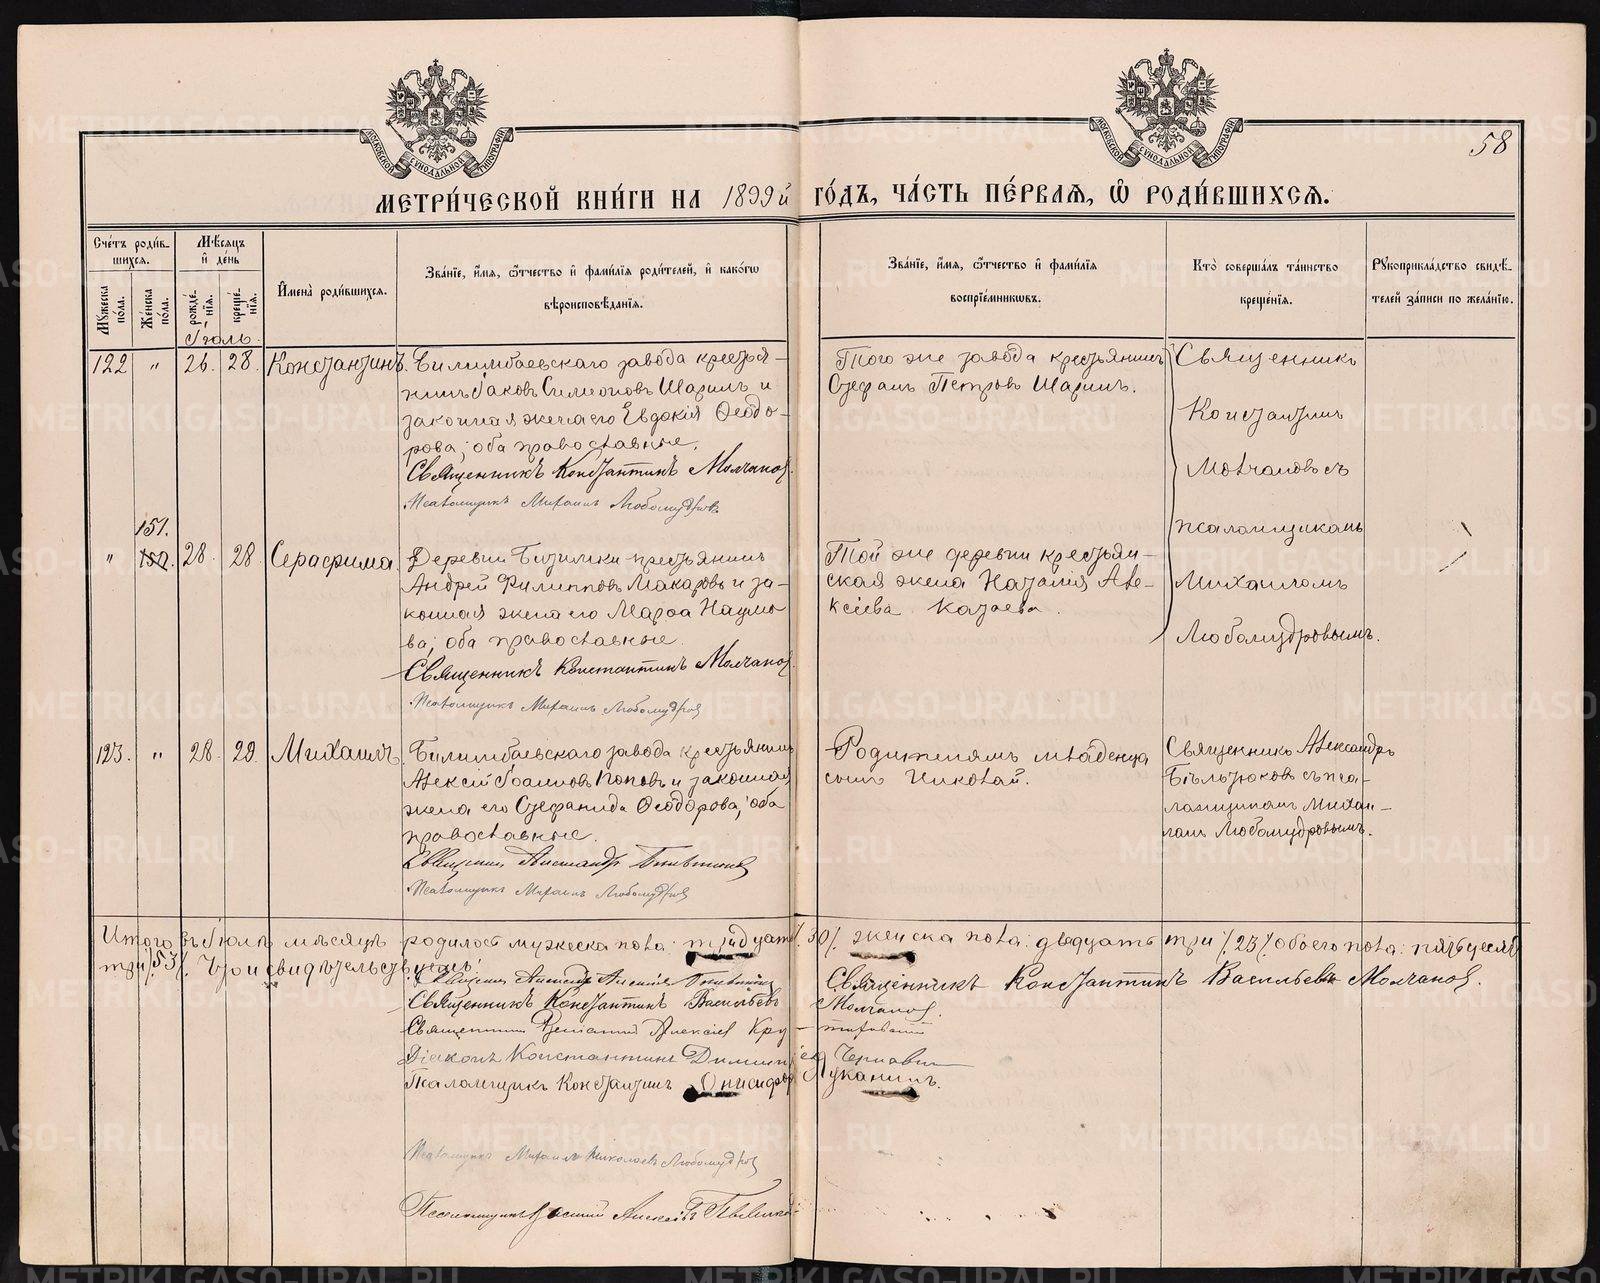 58
МОСКОВСКОЙ СѴНОДАЛЬНОЙ ТИПОГРАФІИ
МОСКОВСКОЙ СѴНОДАЛЬНОЙ ТИПОГРАФІИ
МЕТРИ́ЧЕСКОЙ КНИ́ГИ НА 1899й ГО́ДЪ, ЧА́СТЬ ПЕ́РВАѦ, Ѡ҆ РОДИ́ВШИХСѦ.
Сче́тъ роди́в-шихсѧ.
Мꙋ́жеска по́ла.
Же́нска по́ла.
Мѣ́сѧцъ и҆ де́нь
рожде́-нїѧ.
креще́-нїѧ.
И҆мена̀ роди́вшихсѧ.
Зва́нїе, и҆́мѧ, ѻ҆́тчество и҆ фами́лїѧ роди́телей, и҆ како́гѡ
вѣроисповѣ́данїѧ.
Зва́нїе, и҆́мѧ, ѻ҆́тчество и҆ фами́лїѧ
воспрїе́мникѡвъ.
Кто̀ соверша́лъ та́инство
креще́нїѧ.
Рꙋкоприкла́дство свидѣ́-
телей за́писи по жела́нїю.
Іюль.
122 " 26. 28. Константинъ
Билимбаевскаго завода крестья-
нинъ Іаковъ Симеоновъ Шаринъ и
законная жена его Евдокія Ѳеодо-
рова; оба православные.
Священникъ Константинъ Молчановъ
Псаломщикъ Михаилъ Любомудровъ
Того же завода крестьянинъ
Стефанъ Петровъ Шаринъ.
Священникъ
Константинъ
Молчановъ съ
псаломщикомъ
Михаиломъ
Любомудровымъ.
151.
" 150. 28. 28 Серафима
Деревни Битимки крестьянинъ
Андрей Филипповъ Макаровъ и за-
конная жена его Марѳа Наумо-
ва; оба православные.
Священникъ Константинъ Молчановъ
Псаломщикъ Михаилъ Любомудровъ
Той же деревни крестьян-
ская жена Наталія Але-
ксіева
123. " 28. 29. Михаилъ
Билимбаевскаго завода крестьянинъ
Алексій Іоанновъ Поповъ и законная
жена его Стефанида Ѳеодорова; оба
православные.
Священникъ Александръ
Псаломщикъ Михаилъ Любомудровъ
Родителямъ младенца
сынъ Николай.
Священникъ Александръ
съ пса-
ломщикомъ Михаи-
ломъ Любомудровымъ.
Итого въ Іюлѣ мѣсяцѣ родилось мужеска пола: тридцать /30/. женска пола: двадцать три /23/ обоего пола: пятьдесятъ
три /53/. Что и свидѣтельствуемъ:
Священникъ Константинъ Васильевъ Молчановъ.
Священникъ Константинъ Васильевъ Молчановъ.
Священникъ Алексіевъ
Діаконъ Константинъ Димитріев
Псаломщикъ Константинъ Онисифоровъ Луканинъ.
Псаломщикъ Михаилъ Николаевъ Любомудровъ
Псаломщикъ Алексѣевъ
METRIKI.GASO-URAL.RU